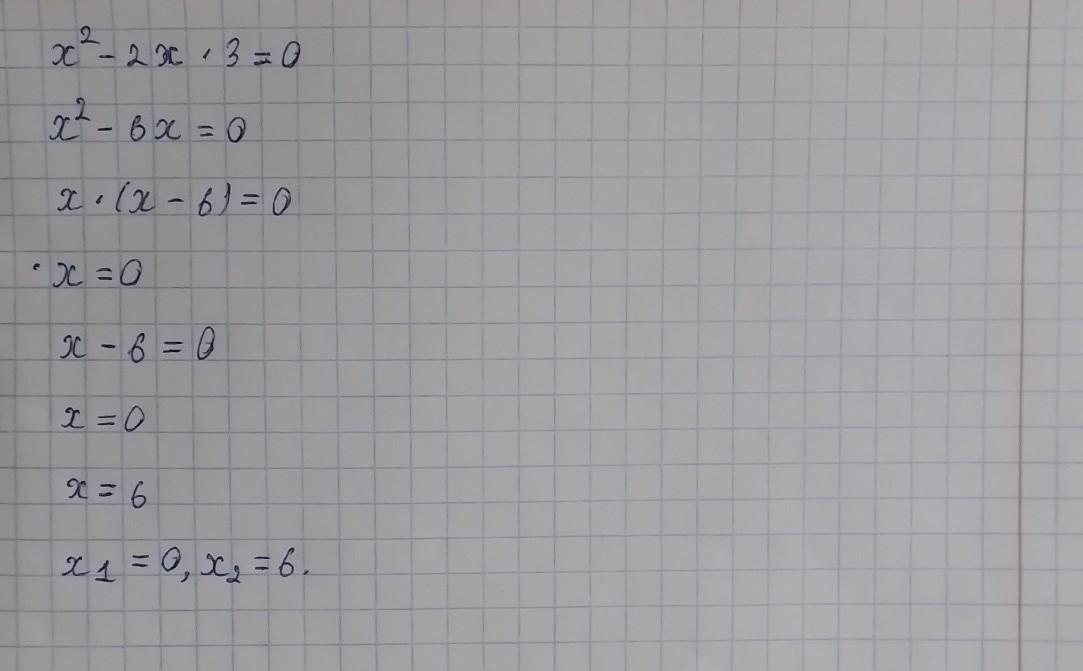 x² - 2x · 3 = 0
x² - 6x = 0
x · (x - 6) = 0
· x = 0
x - 6 = 0
x = 0
x = 6
x₁ = 0, x₂ = 6.